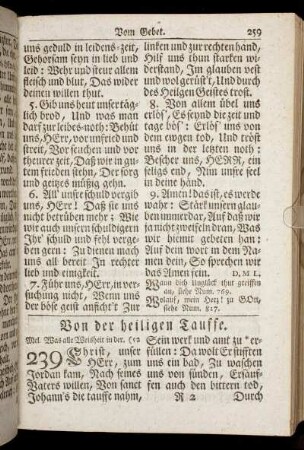 Vom Gebet. 259
uns geduld in leidens-zeit,
Gehorsam seyn in lieb und
leid: Wehr und steur allem
fleisch und blut, Das wider
deinen willen thut.
5. Gib uns heut unser täg-
lich brod, Und was man
darf zur leibes-noth: Behüt
uns, HErr, vor unfried und
streit, Vor seuchen und vor
theurer zeit, Daß wir in gu-
tem frieden stehn, Der sorg
und geitzes müßig gehn.
6. All' unsre schuld vergib
uns, HErr! Daß sie uns
nicht betrüben mehr: Wie
wir auch unsern schuldigern
Ihr' schuld und fehl verge-
ben gern: Zu dienen mach
uns all bereit In rechter
lieb und einigkeit.
7. Führ uns, HErr, in ver-
suchung nicht, Wenn uns
der böse geist anficht Zur
linken und zur rechten hand,
Hilf uns thun starken wi-
derstand, Im glauben vest
und wolgerüst't, Und durch
des Heilgen Geistes trost.
8. Von allem übel uns
erlös', Es seynd die zeit und
tage bös': Erlös' uns von
dem ewgen tod, Und tröst
uns in der letzten noth:
Bescher uns, HERR, ein
seligs end, Nim unsre seel
in deine händ.
9. Amen! das ist, es werde
wahr: Stärk unsern glaub-
en immerdar, Auf daß wir
ja nicht zweifeln dran, Was
wir hiemit gebeten han:
Auf dein wort in dem Na-
men dein, So sprechen wir
das Amen fein. D. M. L.
Wann dich Unglück thut greiffen
an, siehe Num. 769.
Wolauf, mein Hertz! zu GOtt,
siehe Num. 817.
Von der heiligen Tauffe.
Mel. Was alle Weisheit in der. (12
239 Christ, unser
HErr, zum
Jordan kam, Nach seines
Vaters willen, Von sanct
Johann's die tauffe nahm,
Sein werk und amt zu er-
füllen: Da wolt Er stifften
uns ein bad, Zu waschen
uns von sünden, Ersäuf-
fen auch den bittern tod,
R 2 Durch